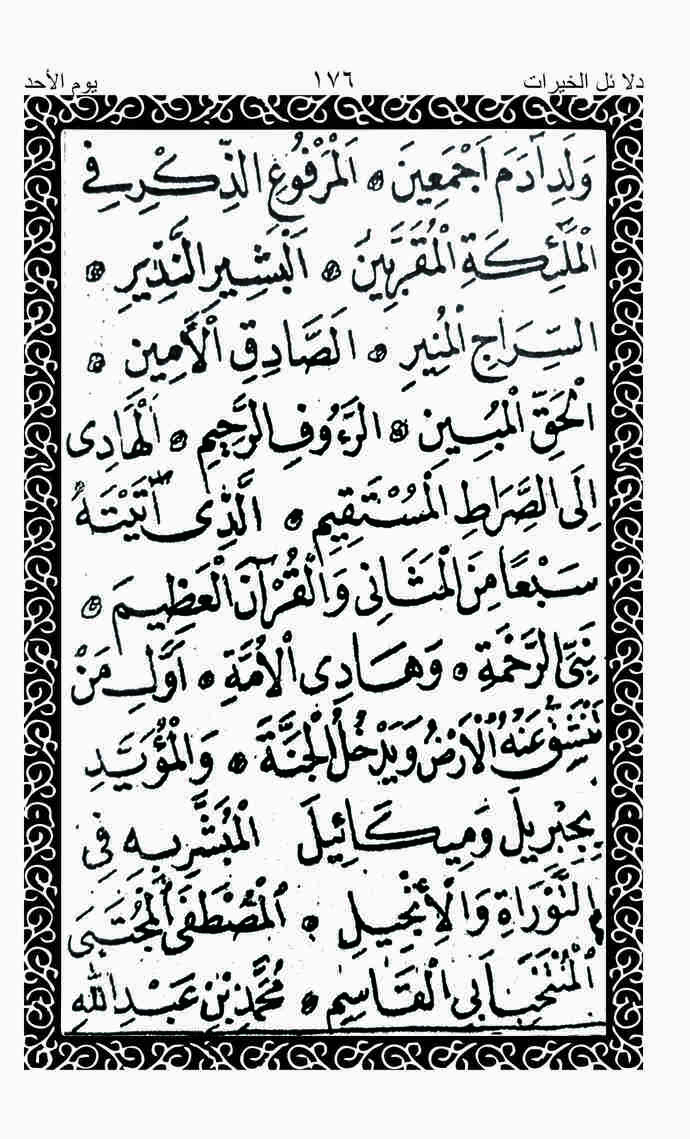 دلائل الخيرات ١٧٦ يوم الأحد
وَلَدِ آدَمَ اَجْمَعِينَ ۞ اَلْمَرْفُوعِ الذِّكْرِ فِي
الْمَلٰٓئِكَةِ الْمُقَرَّبِينَ ۞ اَلْبَشِيرِ النَّذِيرِ ۞
السِّرَاجِ الْمُنِيرِ ۞ اَلصَّادِقِ الْأَمِينِ ۞
الْحَقِّ الْمُبِينِ ۞ الرَّءُوفِ الرَّحِيمِ ۞ اَلْهَادِى
اِلَى الصِّرَاطِ الْمُسْتَقِيمِ ۞ الَّذِى آتَيْتَهُ
سَبْعًا مِنَ الْمَثَانِى وَالْقُرْآنَ الْعَظِيمَ ۞
نَبِىِّ الرَّحْمَةِ ۞ وَهَادِى الْاُمَّةِ ۞ اَوَّلِ مَنْ
تَنْشَقُّ عَنْهُ الْاَرْضُ وَيَدْخُلُ الْجَنَّةَ ۞ وَالْمُؤَيَّدِ
بِجِبْرِيلَ وَمِيكَائِيلَ الْمُبَشَّرِ بِهِ فِى
التَّوْرَاةِ وَالْاِنْجِيلِ ۞ الْمُصْطَفَى الْمُجْتَبَى
الْمُنْتَخَبِ اَبِى الْقَاسِمِ ۞ مُحَمَّدِ بْنِ عَبْدِ اللهِ